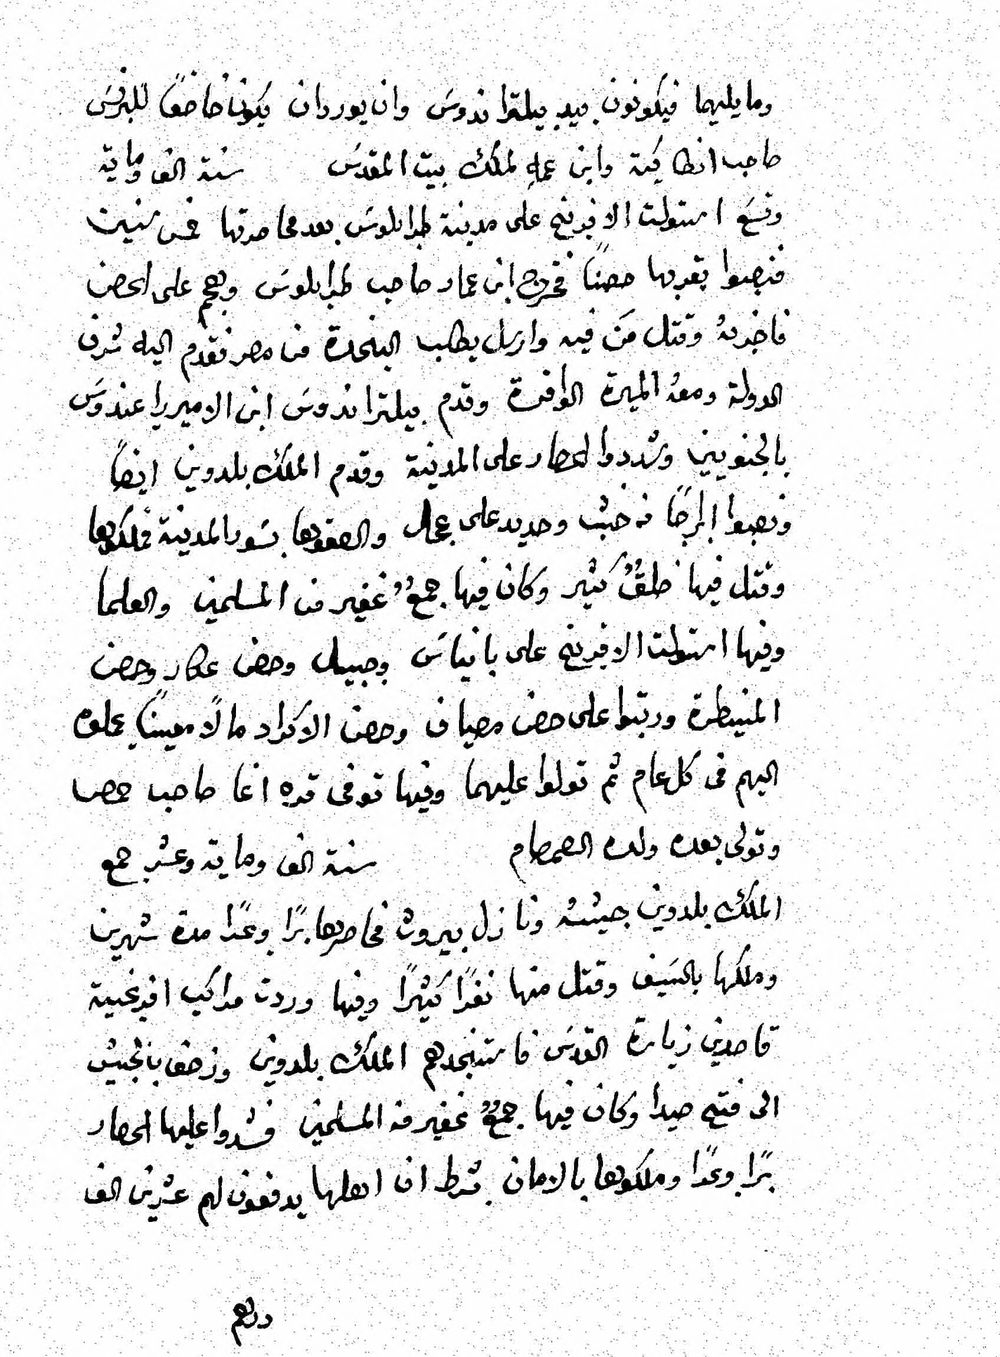 وما يليهما فيكونون بيد بيلتراندوس وان بوردان يكون خاضعًا للبرنس
صاحب انطاكية وابن عمه لملك بيت المقدس سنة الف وماية
وتسع استولت الافرنج على مدينة طرابلوس بعد محاصرتها خمس سنين
فنصبوا بقربها حصنًا فخرج ابن عمار صاحب طرابلوس وهجم على الحصن
فاخربهُ وقتل مَن فيه وارسل يطلب النجدة من مصر فقدم اليه شرف
الدولة ومعهُ الميرة الوافرة وقدم بيلتراندوس ابن الامير راعندوس
بالجنويين وشددوا الحصار على المدينة وقدم الملك بلدوين ايضًا
ونصبوا ابراجًا من خشب وحديد على عجل والصقوها بسور المدينة فملكوها
وقتل فيها خلقٌ كثير وكان فيها جمعٌ غفير من المسلمين والعلما
وفيها استولت الافرنج على بانياس وجبيل وحصن عكار وحصن
المنيطرة ورتبوا على حصن مصياف وحصن الاكراد مالًا معينًا يحملوه
اليهم فى كل عام ثم تولوا عليهما وفيها توفى قره اغا صاحب حمص
وتولى بعده ولده الصمصام سنة الف وماية وعشر جمع
الملك بلدوين جيشه ونازل بيروت فحاصرها برًا وبحرًا مدة شهرين
وملكها بالسيف وقتل منها نفرًا كثيرًا وفيها وردت مراكب افرنجية
قاصدين زيارة القدس فاستنجدهم الملك بلدوين وزحف بالجيش
الى فتح صيدا وكان فيها جمعٌ غفير من المسلمين فشدوا عليها الحصار
برًا وبحرًا وملكوها بالامان بشرط ان اهلها يدفعون لهم عشرين الف
درهم